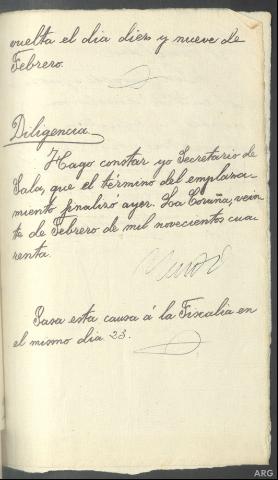 vuelta el dia diez y nueve de
Febrero.
Diligencia
Hago constar yo Secretario de
Sala, que el término del emplaza-
miento finalizó ayer. La Coruña, vein
te de Febrero de mil novecientos cua-
renta.
Pasa esta causa á la Fiscalia en
el mismo dia 23.
ARG